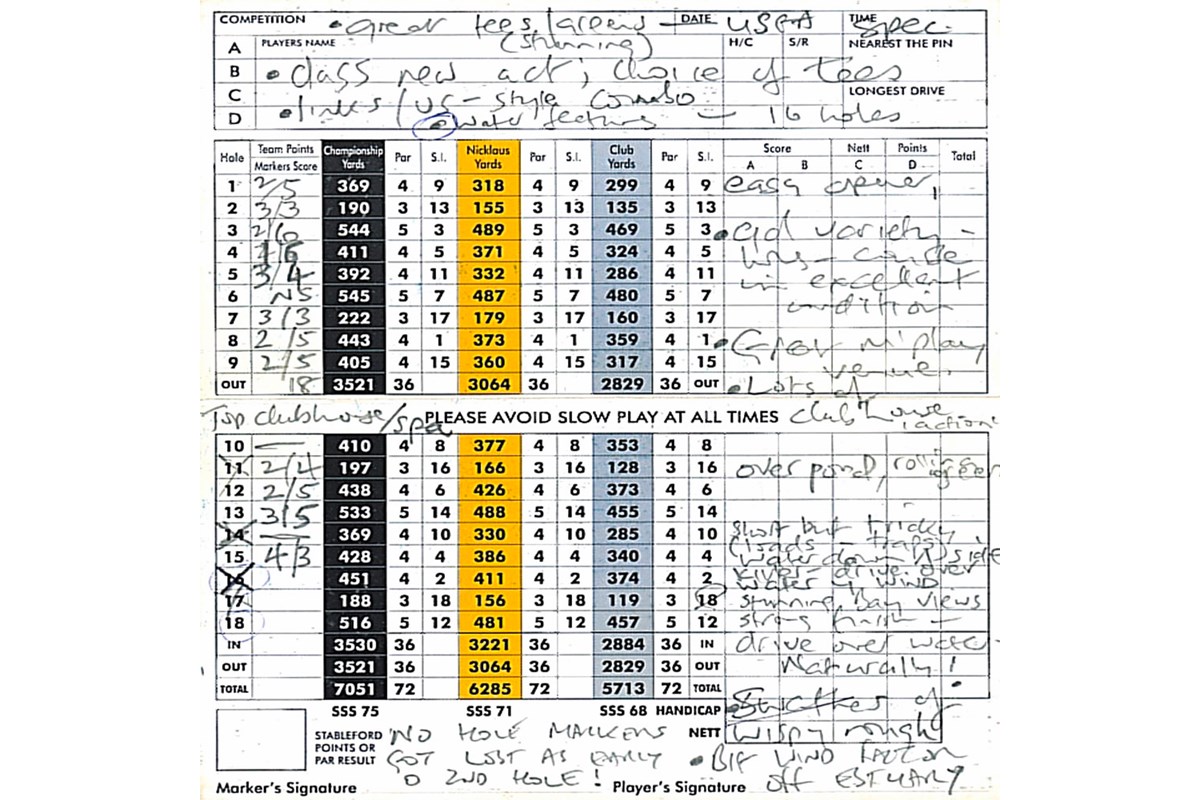 COMPETITION • Great tees/greens — DATE USPGA TIME spec.
A PLAYERS NAME (stunning) H/C S/R NEAREST THE PIN
B • class new act; choice of tees
C • links/US-style combo LONGEST DRIVE
D • water features — 16 holes
Hole Team Points Markers Score Championship Yards Par S.I. Nicklaus Yards Par S.I. Club Yards Par S.I. Score A B Nett C Points D Total
1 2/5 369 4 9 318 4 9 299 4 9 easy opener,
2 3/3 190 3 13 155 3 13 135 3 13
3 2/6 544 5 3 489 5 3 469 5 3 • gd variety -
4 /6 411 4 5 371 4 5 324 4 5
5 3/4 392 4 11 332 4 11 286 4 11 in excellent
6 NS 545 5 7 487 5 7 480 5 7 condition
7 3/3 222 3 17 179 3 17 160 3 17
8 2/5 443 4 1 373 4 1 359 4 1 • Great m'play
9 2/5 405 4 15 360 4 15 317 4 15 venue.
OUT 18 3521 36 3064 36 2829 36 OUT • Lots of
Top clubhouse/spa PLEASE AVOID SLOW PLAY AT ALL TIMES club house action
10 — 410 4 8 377 4 8 353 4 8
11 2/4 197 3 16 166 3 16 128 3 16 over pond, rolling green
12 2/5 438 4 6 426 4 6 373 4 6
13 3/5 533 5 14 488 5 14 455 5 14
14 — 369 4 10 330 4 10 285 4 10 short but tricky
15 4/3 428 4 4 386 4 4 340 4 4 (water down side
16 451 4 2 411 4 2 374 4 2 drive over water + WIND
17 188 3 18 156 3 18 119 3 18 stunning Bay views
18 516 5 12 481 5 12 457 5 12 strong finish —
IN 3530 36 3221 36 2884 36 IN drive over water
OUT 3521 36 3064 36 2829 36 OUT Naturally!
TOTAL 7051 72 6285 72 5713 72 TOTAL
SSS 75 SSS 71 SSS 68 HANDICAP • Swathes of
STABLEFORD POINTS OR PAR RESULT NETT wispy rough
NO HOLE MARKERS
GOT LOST AS EARLY
2ND HOLE!
• BIG WIND FACTOR
off ESTUARY
Marker's Signature Player's Signature